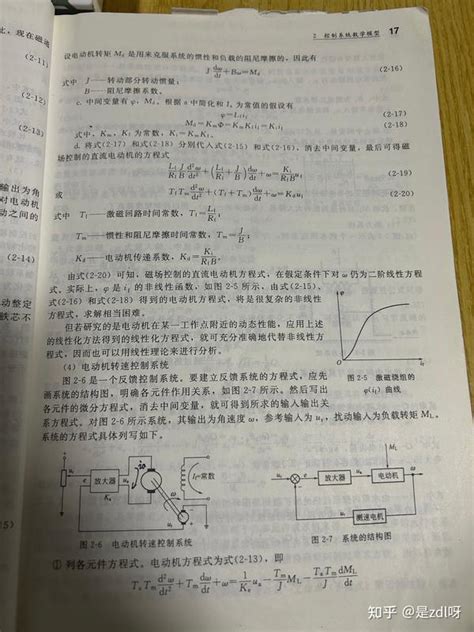 2 控制系统数学模型 17
此，现在磁通
(2-11
(2-12
(2-13)
输出为角
对电动机
动之间的
(2-14)
动整定
铁芯不
5)
设电动机转矩 Md 是用来克服系统的惯性和负载的阻尼摩擦的，因此有
J dω/dt + Bω = Md (2-16)
式中 J——转动部分转动惯量；
B——阻尼摩擦系数。
c. 中间变量有 φ、Md。根据 a 中简化和 Ia 为常值的假设有
φ=L₁i₁ (2-17)
(2-18)
为常数，
d. 将式(2-17) 和式(2-18) 分别代入式(2-15) 和式(2-16)，消去中间变量，最后可得磁
场控制的直流电动机的方程式
(2-19)
或
(2-20)
式中 Tf——激磁回路时间常数，
Tm——惯性和阻尼摩擦时间常数，Tm = J/B；
Kd——电动机传递系数，
由式(2-20) 可知，磁场控制的直流电动机方程式，在假定条件下对 ω 仍为二阶线性方程
式。实际上，φ 是 if 的非线性函数，如图 2-5 所示，由式(2-15)、
式(2-16) 和式(2-18) 得到的电动机方程式，将是很复杂的非线性
方程式，求解相当困难。
但若研究的是电动机在某一工作点附近的动态性能，应用上述
的线性化方法得到的线性化方程式，就可充分准确地代替非线性方
程式，因而也可以用线性理论来进行分析。
φ
if
图 2-5 激磁绕组的
φ(if) 曲线
(4) 电动机转速控制系统
图 2-6 是一个反馈控制系统。要建立反馈系统的方程式，应先
画系统的结构图，明确各元件作用关系，如图 2-7 所示。然后写出
各元件的微分方程式，消去中间变量，就可得到所求的输入输出关
系方程式。对图 2-6 所示系统，其输出为角速度 ω，参考输入为 ur，扰动输入为负载转矩 ML。
系统的方程式具体列写如下。
放大器
Ka
ω
If=常数
图 2-6 电动机转速控制系统
ML
ur
e
放大器
ua
电动机
ω
测速电机
图 2-7 系统的结构图
① 列各元件方程式。电动机方程式为式(2-13)，即
TaTm d²ω/dt² + Tm dω/dt + ω = 1/Ke ua − Tm/J ML − TaTm/J dML/dt
知乎 @是zdl呀